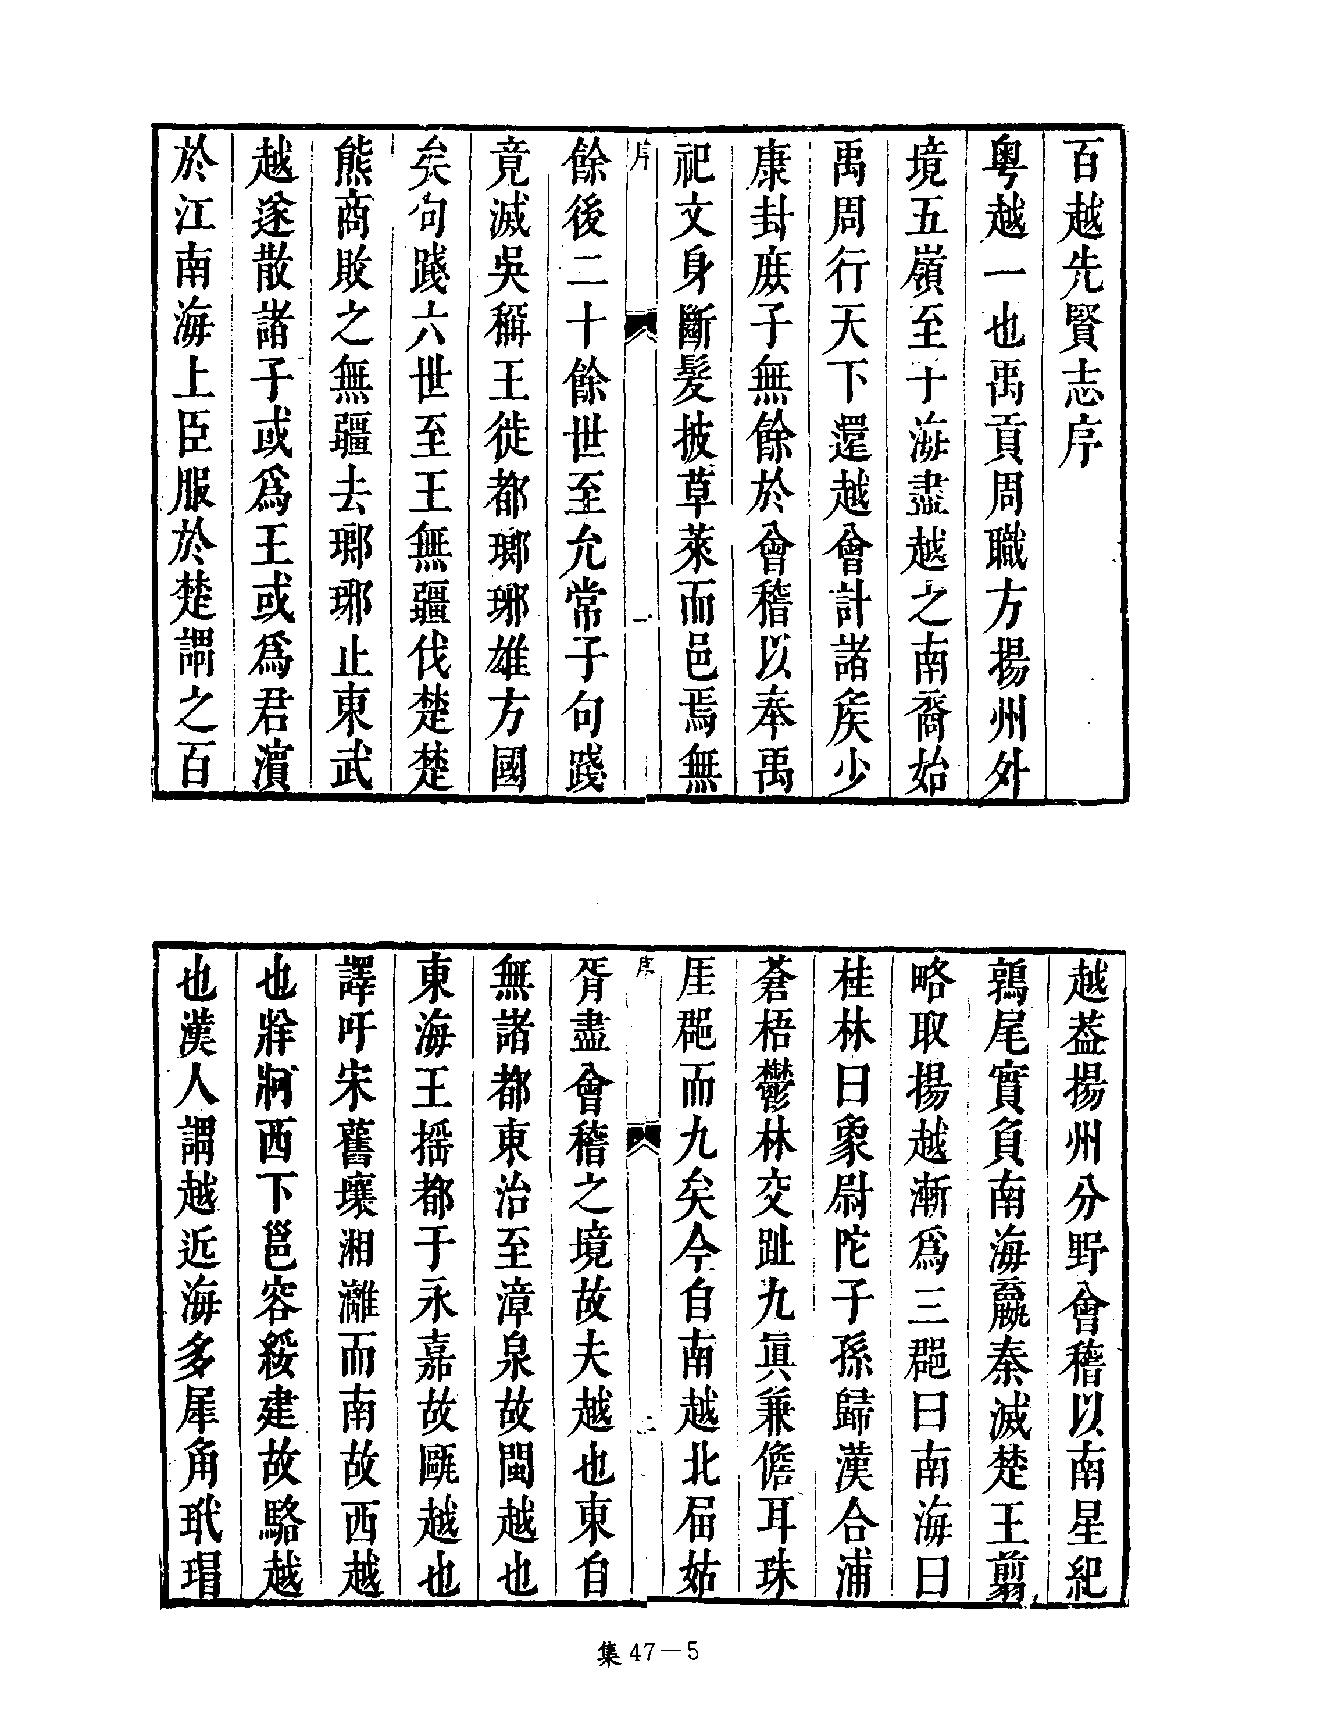 百越先賢志序
粤越一也禹貢周職方揚州外
境五嶺至于海盡越之南裔始
禹周行天下還越會計諸矦少
康封庶子無餘於會稽以奉禹
祀文身斷髮披草萊而邑焉無
序
一
餘後二十餘世至允常子句踐
竟滅吳稱王徙都瑯琊雄方國
矣句踐六世至王無疆伐楚楚
熊商敗之無疆去瑯琊止東武
越遂散諸子或爲王或爲君濵
於江南海上臣服於楚謂之百
越葢揚州分野會稽以南星紀
鶉尾實負南海嬴秦滅楚王翦
略取揚越漸爲三郡曰南海曰
桂林曰象尉陀子孫歸漢合浦
蒼梧鬱林交趾九眞兼儋耳珠
厓郡而九矣今自南越北届姑
序
二
胥盡會稽之境故夫越也東自
無諸都東冶至漳泉故閩越也
東海王揺都于永嘉故甌越也
譯吁宋舊壤湘灕而南故西越
也牂牁西下邕容綏建故駱越
也漢人謂越近海多犀角玳瑁
集47—5